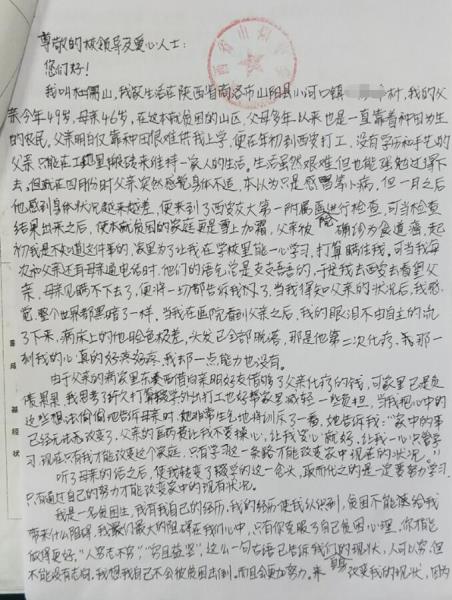 尊敬的校领导及爱心人士：
您们好！
我叫杜儒山，我家生活在陕西省商洛市山阳县小河口镇 村，我的父
亲今年49岁，母亲46岁，在这本就贫困的山区，父母多年以来也是一直靠着种田为生
的农民，父亲明白仅靠种田很难供我上学，便在年初到西安打工，没有学历和手艺的
父亲只能在工地里搬砖来维持一家人的生活。生活虽然艰难但也能强勉过得下
去，但就在四月份时父亲突然感觉身体不适，本以为只是感冒等小病，但一月之后
他感到身体状况越来越差，便来到了西安交大第一附属医院进行检查，可当检查
结果出来之后，使本就贫困的家庭更是雪上加霜，父亲被确诊为食道癌，起
初我是不知道这件事的，家里为了让我在学校里能一心学习，打算瞒住我。可当我每
次和父亲还有母亲通电话时，他们的语气总是支支吾吾的，于是我去西安去看望父
亲，母亲见瞒不下去了，便将一切都告诉我了，当我得知父亲的状况后，我感
觉整个世界都黑暗了一样，当我在医院看到父亲之后，我的眼泪不由自主的流
了下来，病床上的他脸色极差，头发已全部脱落，那是他第二次化疗。我那一
刻我的心真的好疼好疼，我却一点能力也没有。
由于父亲的病家里东 西借向亲朋好友借够了父亲化疗的钱，可家里已是负
债累累，我思考了许久打算辍学外出打工也好帮家里减轻一些负担，当我把心中的
这些想法偷偷地告诉母亲时，她非常生气地将训斥了一番，她告诉我：“家中的事
已经无法改变了，父亲的医药费让我不要操心，让我安心就好，让我一心只管学
习，现在只有我才能改变这个家庭，只有学习这一条路才能改变家中现在的状况。”
听了母亲的话之后，使我转变了辍学的这一念头，取而代之的是一定要努力学习，
只有通过自己的努力才能改变家中的现有状况。
我是一名贫困生，我有我自己的经历，我的经历使我认识到，贫困不能 给我
带来什么阻碍，我们最大的阻碍在我们心中，只有你克服了自己贫困心理，你才能
做得更好。“人穷志不穷”“穷且益坚”，这么一句古语已告诉我们的现状，人可以穷，但
不能没有志向，我想我自己不会被贫困击倒。而且会更加努力。来 改变我的现状，因为